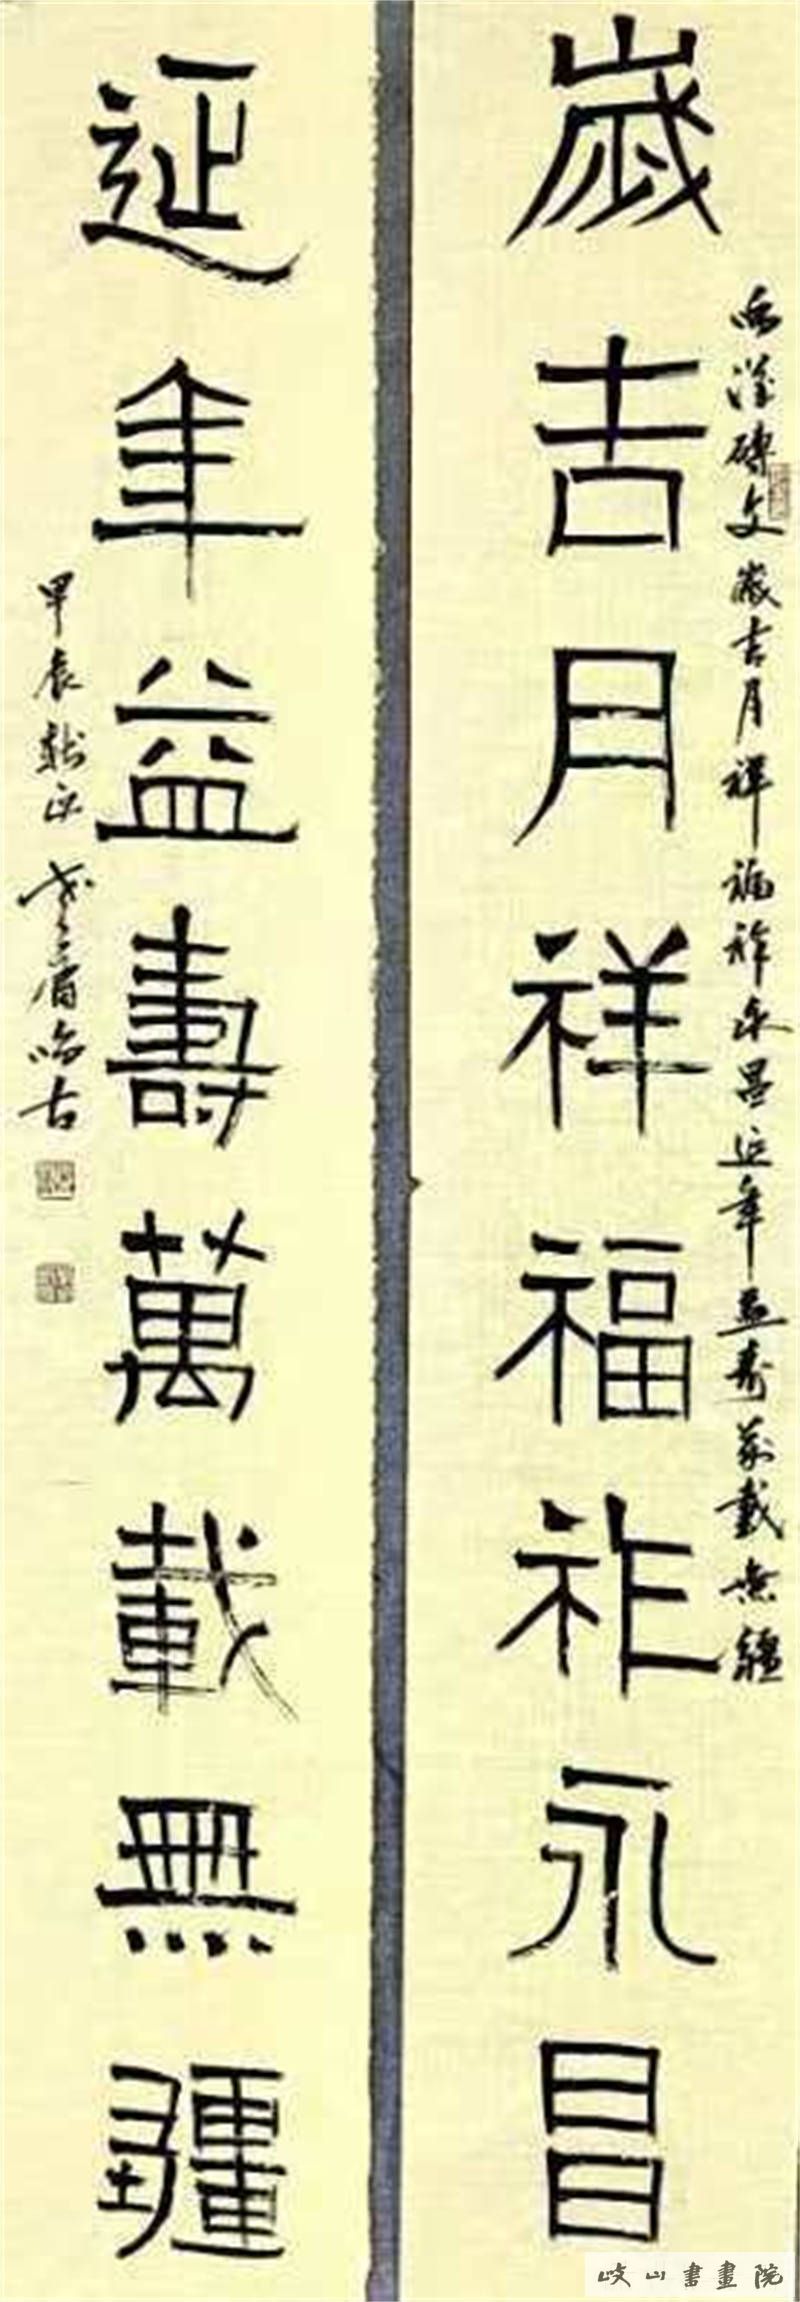 歲吉月祥福祚永昌
西漢磚文歲吉月祥福祚永昌延年益壽萬載無疆
延年益壽萬載無疆
甲辰秋
岐山書畫院